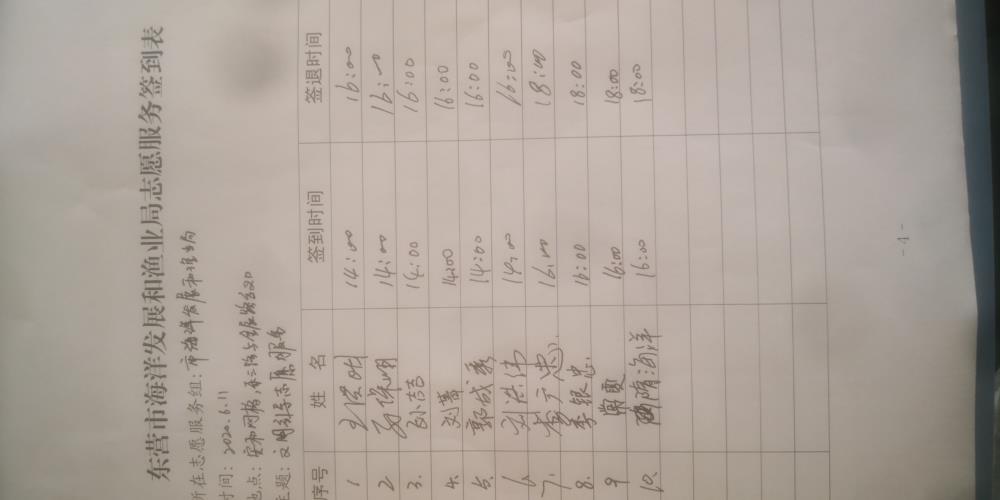 东营市海洋发展和渔业局志愿服务签到表
所在志愿服务组：市海洋发展和渔业局
时间：2020.6.11
地点：
主题：文明引导志愿服务
序号 姓 名 签到时间 签退时间
1 14:00 16:00
2 14:00 16:00
3. 孙喆 14:00 16:00
4. 刘菁 14:00 16:00
5. 郭成秀 14:00 16:00
6. 刘洪伟 14:00 16:00
7. 16:00 18:00
8. 李银忠 16:00 18:00
9 常雯 16:00 18:00
10. 隋海洋 16:00 18:00
- 4 -